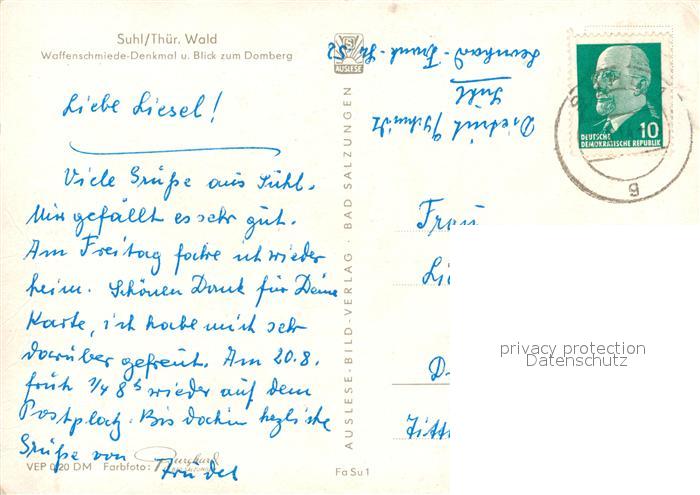 Suhl/Thür. Wald
Waffenschmiede-Denkmal u. Blick zum Domberg
Liebe Liesel!
Viele Grüße aus Suhl.
Mir gefällt es sehr gut.
Am Freitag fahre ich wieder
heim. Schönen Dank für Deine
Karte, ich habe mich sehr
darüber gefreut. Am 20.8.
früh wieder auf dem
Postplatz. Bis dahin herzliche
Grüße von
Trudel
VEP 0,20 DM Farbfoto:
AUSLESE-BILD-VERLAG · BAD SALZUNGEN
AUSLESE
Fa Su 1
Suhl
10
DEUTSCHE
DEMOKRATISCHE REPUBLIK
g
Frau
privacy protection
Datenschutz